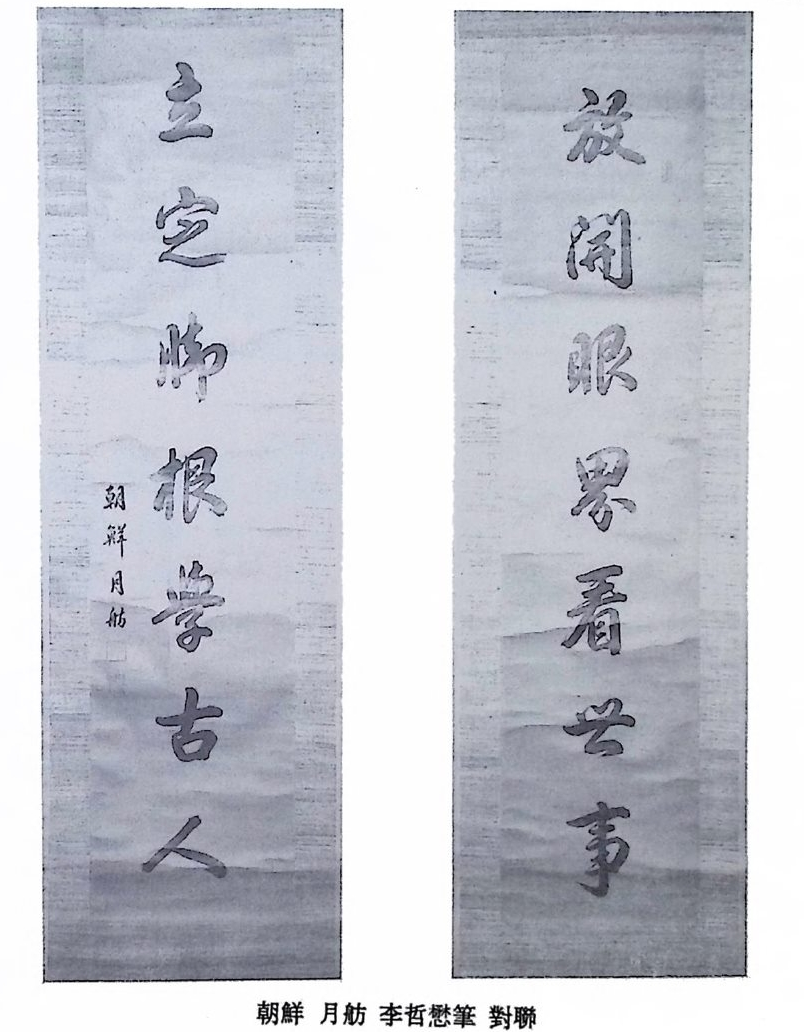 放開眼界看世事
立定脚根學古人
朝鮮月舫
朝鮮 月舫 李哲懋筆 對聯